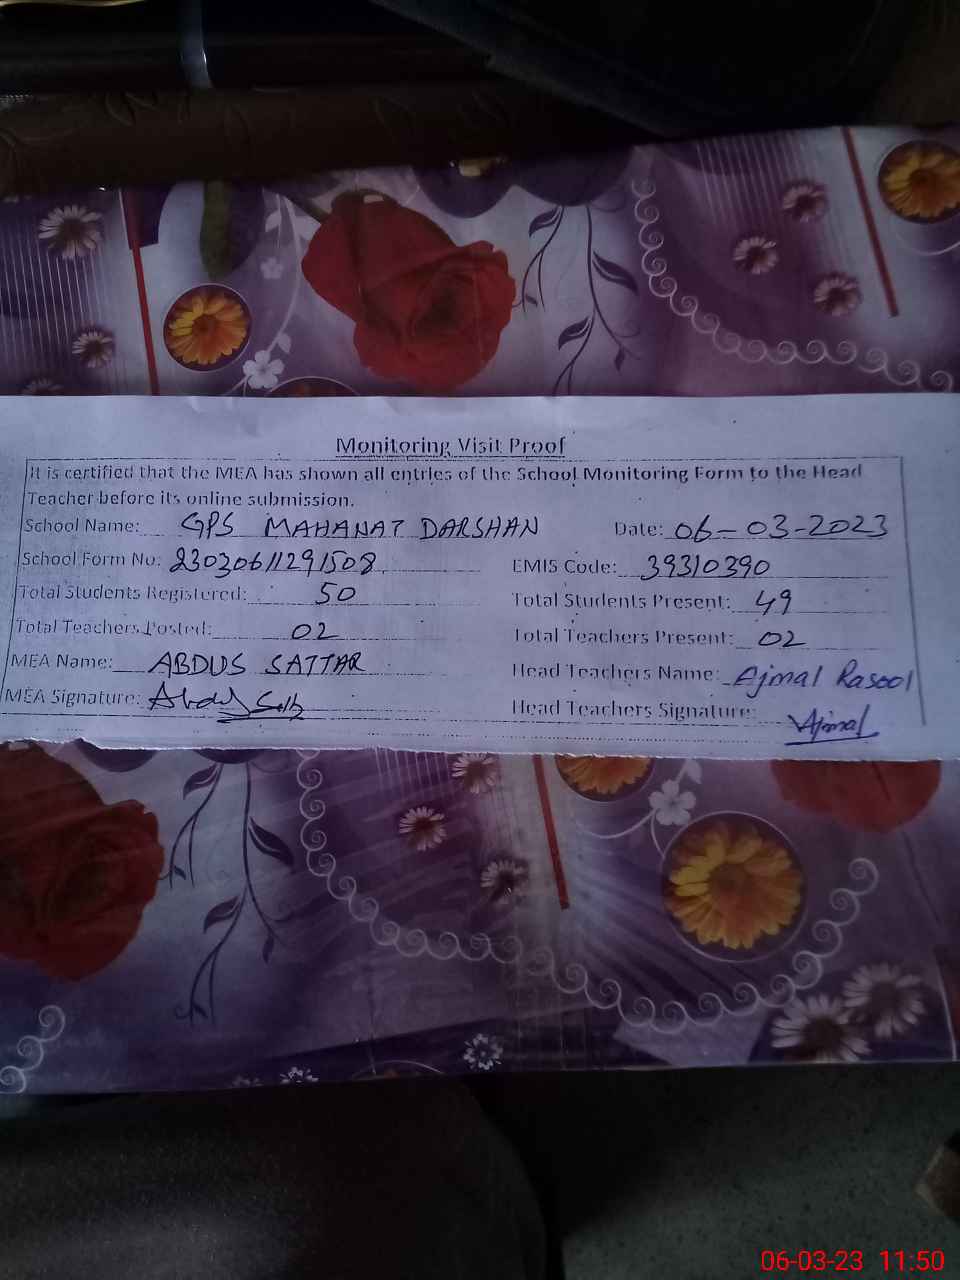 Monitoring Visit Proof
It is certified that the MEA has shown all entries of the School Monitoring Form to the Head
Teacher before its online submission.
School Name: GPS MAHANAT DARSHAN Date: 06-03-2023
School Form No: 23030611291508 EMIS Code: 39310390
Total Students Registered: 50 Total Students Present: 49
Total Teachers Posted: 02 Total Teachers Present: 02
MEA Name: ABDUS SATTAR Head Teachers Name: Ajmal Rasool
MEA Signature: Head Teachers Signature: Ajmal
06-03-23 11:50